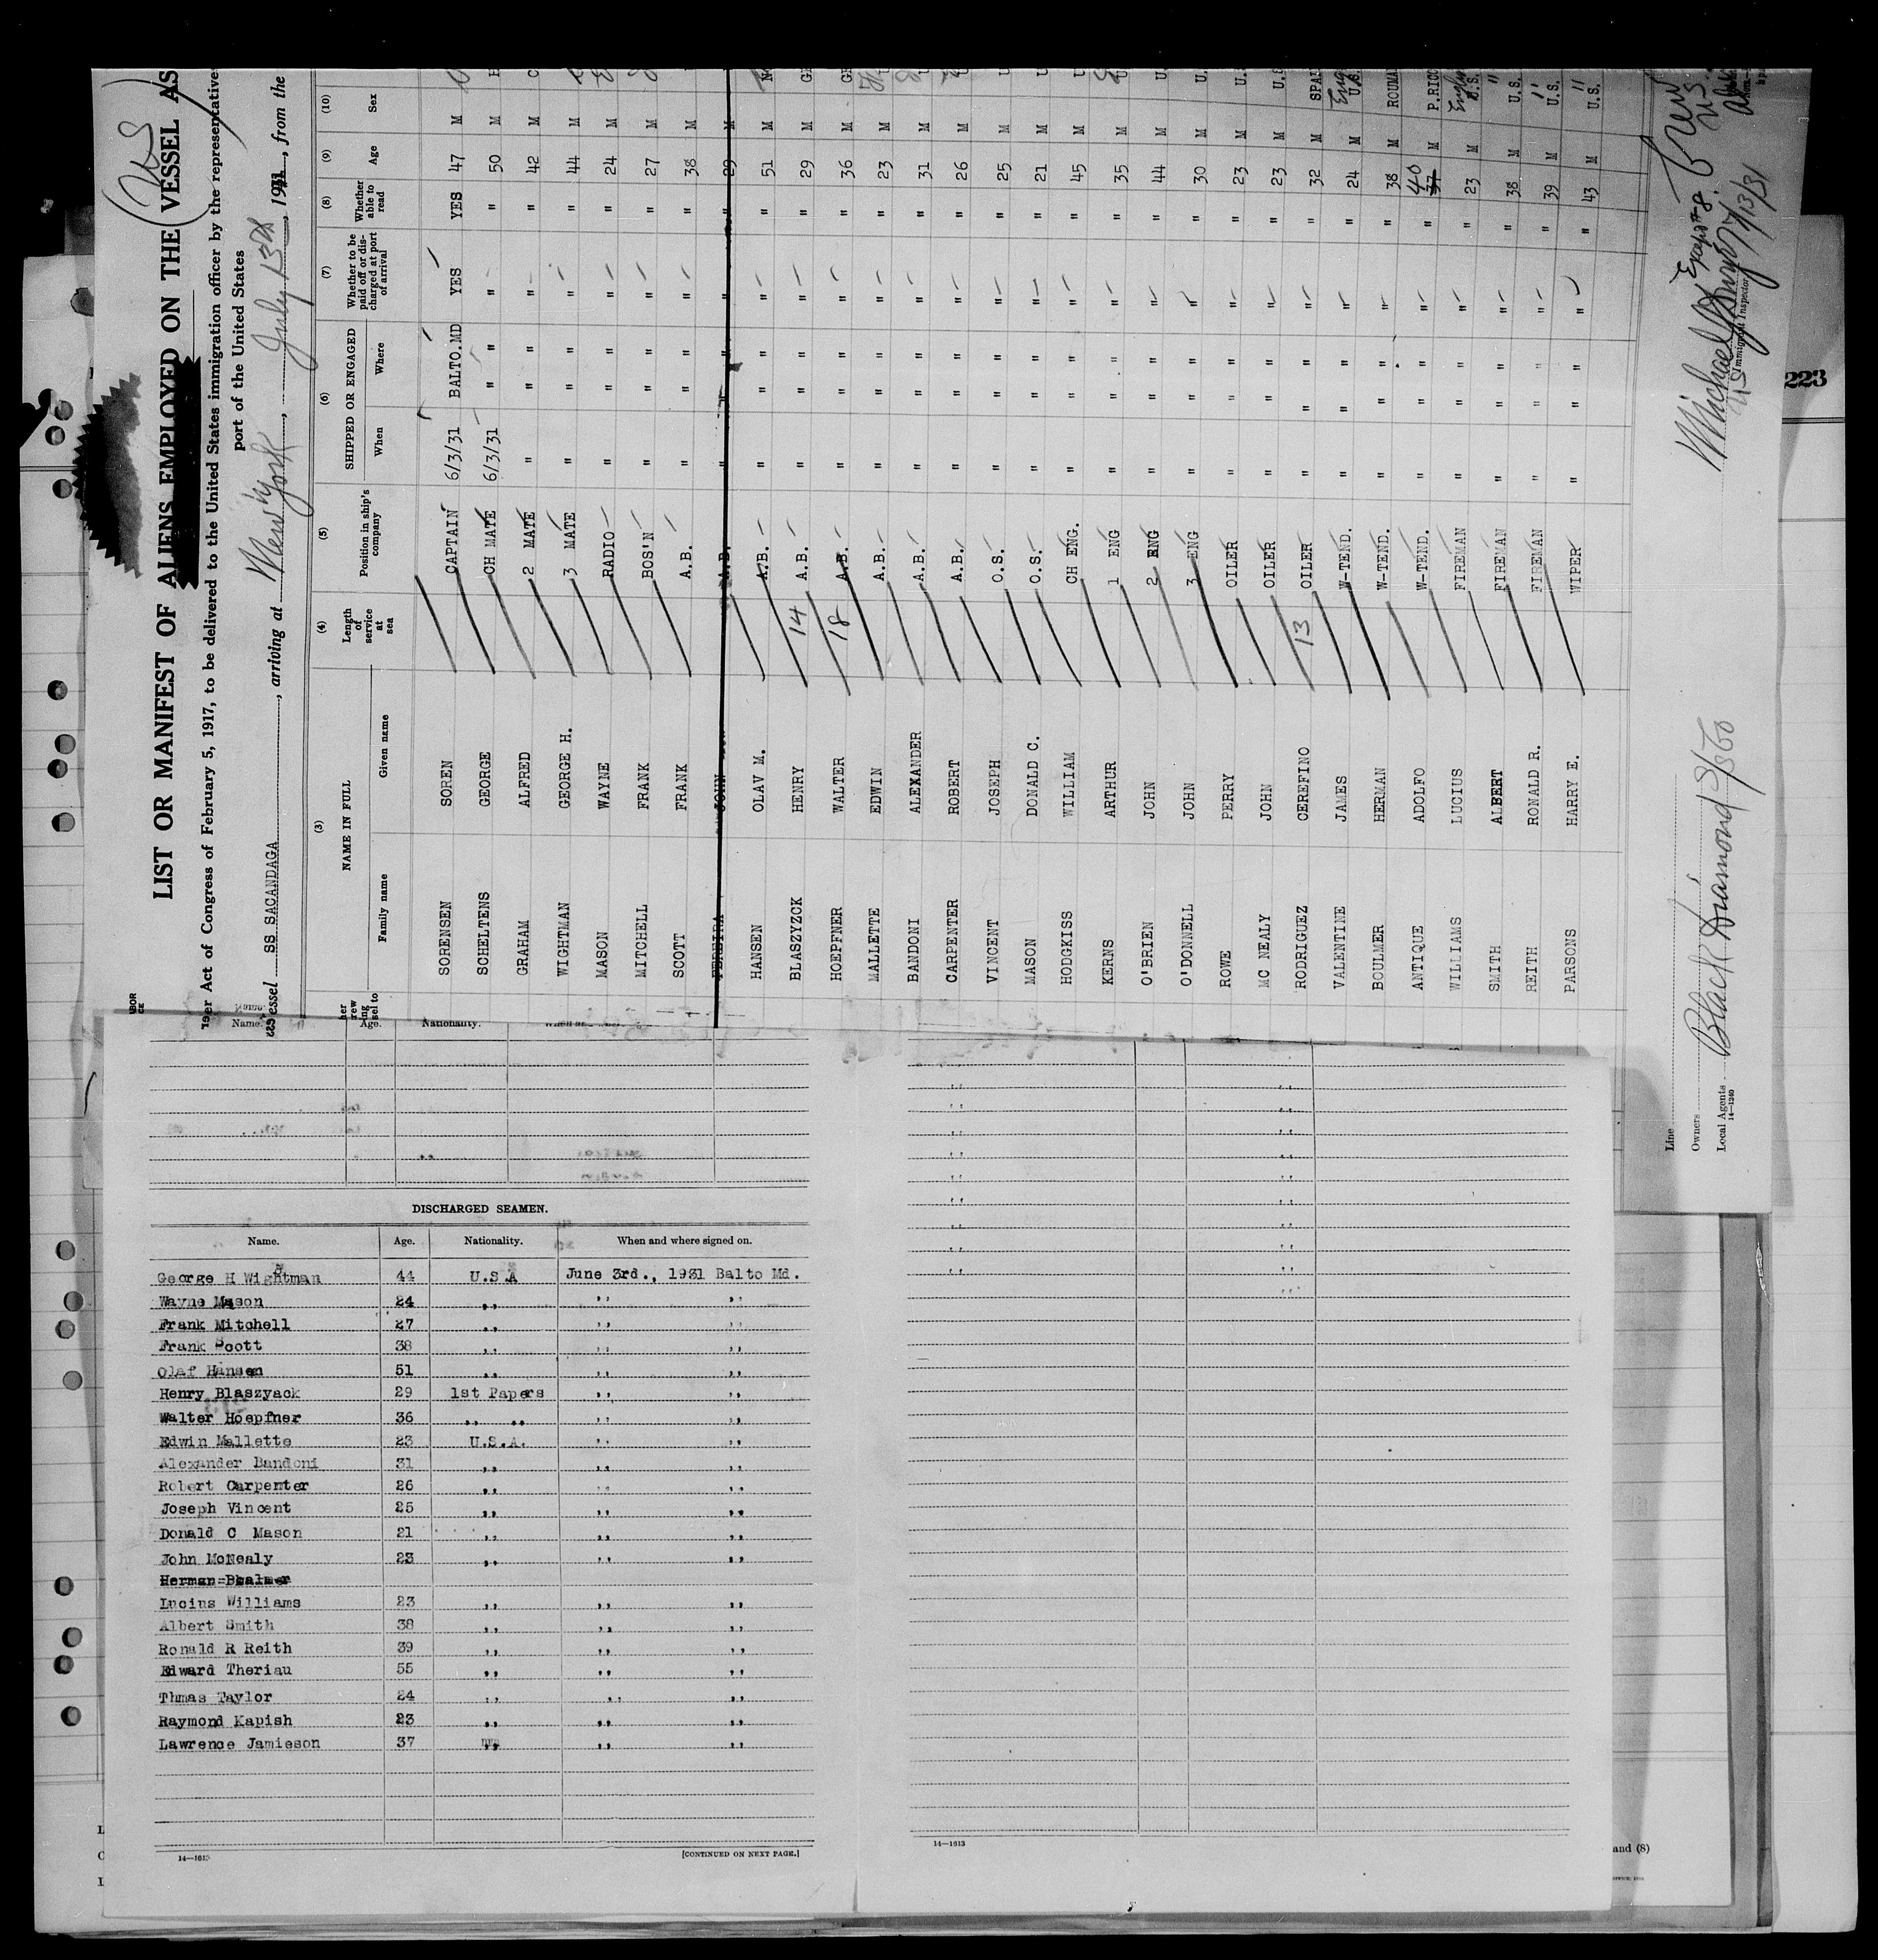 LIST OR MANIFEST OF ALIENS EMPLOYED ON THE VESSEL AS
er Act of Congress of February 5, 1917, to be delivered to the United States immigration officer by the representatives
port of the United States
essel SS SACANDAGA, arriving at New York, July 13th, 1931, from the
(3) (4) (5) (6) (7) (8) (9) (10)
NAME IN FULL Length of service at sea Position in ship's company SHIPPED OR ENGAGED Whether to be paid off or discharged at port of arrival Whether able to read Age Sex
Family name Given name When Where
SORENSEN SOREN CAPTAIN 6/3/31 BALTO.MD YES YES 47 M
SCHELTENS GEORGE CH MATE 6/3/31 " " " " 50 M
GRAHAM ALFRED 2 MATE " " " " " 42 M
WIGHTMAN GEORGE H. 3 MATE " " " " " 44 M
MASON WAYNE RADIO " " " " " 24 M
MITCHELL FRANK BOS'N " " " " " 27 M
SCOTT FRANK A.B. " " " " " 38 M
PEREIRA JOHN A.B. " " " " " 29 M
HANSEN OLAV M. A.B. " " " " " 51 M
BLASZYZCK HENRY 14 A.B. " " " " " 29 M
HOEPFNER WALTER 18 A.B. " " " " " 36 M
MALLETTE EDWIN A.B. " " " " " 23 M
BANDONI ALEXANDER A.B. " " " " " 31 M
CARPENTER ROBERT A.B. " " " " " 26 M
VINCENT JOSEPH O.S. " " " " " 25 M
MASON DONALD C. O.S. " " " " " 21 M
HODGKISS WILLIAM CH ENG. " " " " " 45 M
KERNS ARTHUR 1 ENG " " " " " 35 M
O'BRIEN JOHN 2 ENG " " " " " 44 M
O'DONNELL JOHN 3 ENG " " " " " 30 M
ROWE PERRY OILER " " " " " 23 M
MC NEALY JOHN OILER " " " " " 23 M
RODRIGUEZ CEREFINO 13 OILER " " " " " 32 M SPAI
VALENTINE JAMES W-TEND. " " " " " 24 M U.S.
BOULMER HERMAN W-TEND. " " " " " 38 M ROUMA
ANTIQUE ADOLFO W-TEND. " " " " " 37 40 M P.RICO
WILLIAMS LUCIUS FIREMAN " " " " " 23 M U.S.
SMITH ALBERT FIREMAN " " " " " 38 M U.S.
REITH RONALD R. FIREMAN " " " " " 39 M U.S.
PARSONS HARRY E. WIPER " " " " " 43 M U.S.
Line
Owners
Local Agents Black Diamond
14—1240
Immigrant Inspector
7/13/31
223
Name. Age. Nationality.
DISCHARGED SEAMEN.
Name. Age. Nationality. When and where signed on.
George H Wightman 44 U.S.A June 3rd., 1931 Balto Md.
Wayne Mason 24 ,, ,, ,,
Frank Mitchell 27 ,, ,, ,,
Frank Scott 38 ,, ,, ,,
Olaf Hansen 51 ,, ,, ,,
Henry Blaszyack 29 1st Papers ,, ,,
Walter Hoepfner 36 ,, ,, ,, ,,
Edwin Mallette 23 U.S.A. ,, ,,
Alexander Bandoni 31 ,, ,, ,,
Robert Carpenter 26 ,, ,, ,,
Joseph Vincent 25 ,, ,, ,,
Donald C Mason 21 ,, ,, ,,
John McNealy 23 ,, ,, ,,
Herman
Lucius Williams 23 ,, ,, ,,
Albert Smith 38 ,, ,, ,,
Ronald R Reith 39 ,, ,, ,,
Edward Theriau 55 ,, ,, ,,
Thmas Taylor 24 ,, ,, ,,
Raymond Kapish 23 ,, ,, ,,
Lawrence Jamieson 37 ,, ,, ,,
14—1613
[CONTINUED ON NEXT PAGE.]
14—1613
and (8)